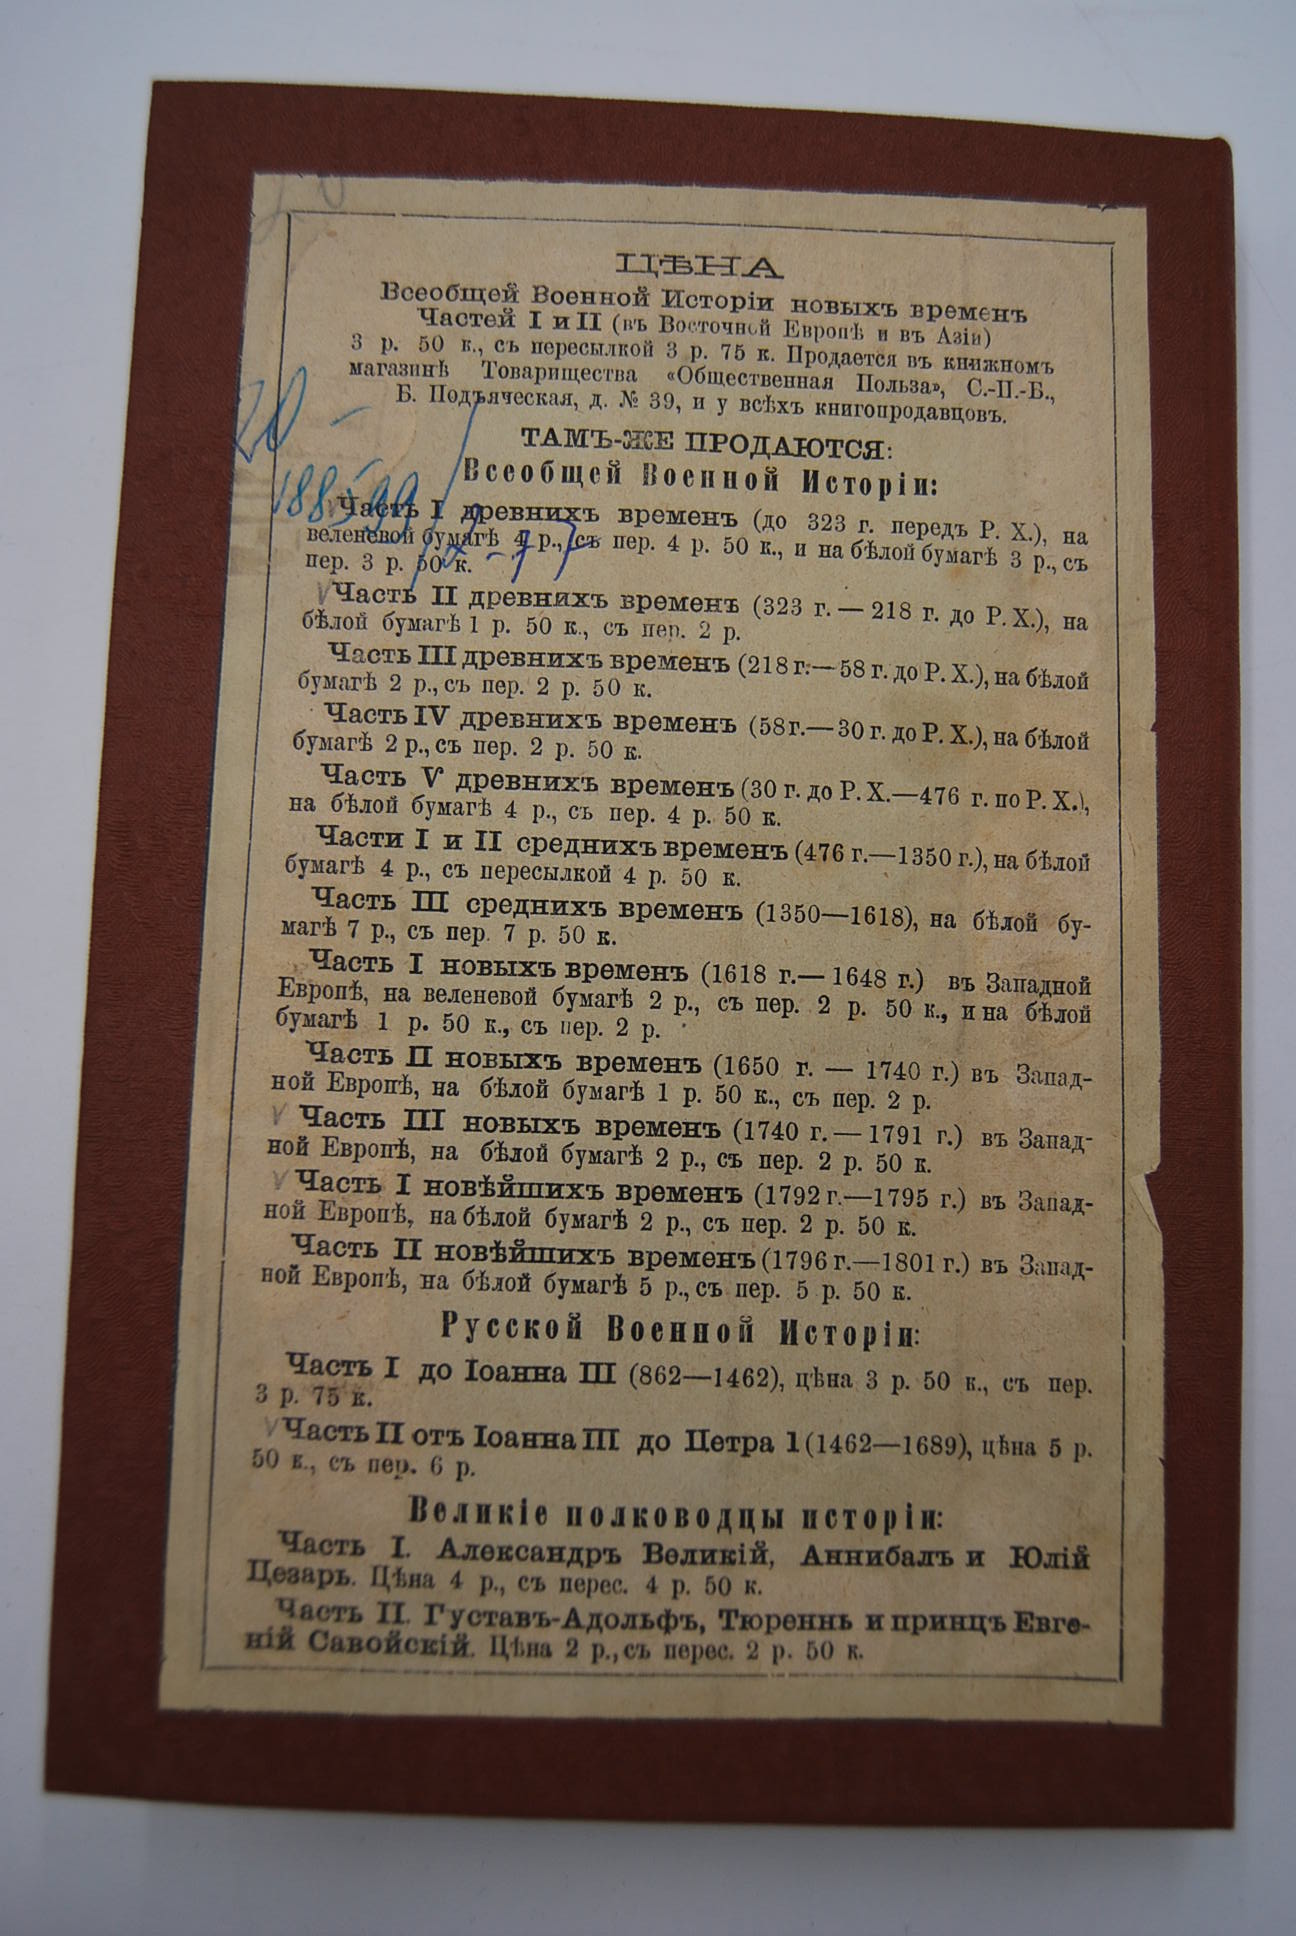 ЦѢНА
Всеобщей Военной Исторіи новыхъ временъ
Частей I и II (въ Восточной Европѣ и въ Азіи)
3 р. 50 к., съ пересылкой 3 р. 75 к. Продается въ книжномъ
магазинѣ Товарищества «Общественная Польза», С.-П.-Б.,
Б. Подъяческая, д. № 39, и у всѣхъ книгопродавцовъ.
ТАМЪ-ЖЕ ПРОДАЮТСЯ:
Всеобщей Военной Исторіи:
Часть I древнихъ временъ (до 323 г. передъ Р. Х.), на
веленевой бумагѣ 4 р., съ пер. 4 р. 50 к., и на бѣлой бумагѣ 3 р., съ
пер. 3 р. 50 к.
Часть II древнихъ временъ (323 г. — 218 г. до Р. Х.), на
бѣлой бумагѣ 1 р. 50 к., съ пер. 2 р.
Часть III древнихъ временъ (218 г.—58 г. до Р. Х.), на бѣлой
бумагѣ 2 р., съ пер. 2 р. 50 к.
Часть IV древнихъ временъ (58 г.—30 г. до Р. Х.), на бѣлой
бумагѣ 2 р., съ пер. 2 р. 50 к.
Часть V древнихъ временъ (30 г. до Р. Х.—476 г. по Р. Х.),
на бѣлой бумагѣ 4 р., съ пер. 4 р. 50 к.
Части I и II среднихъ временъ (476 г.—1350 г.), на бѣлой
бумагѣ 4 р., съ пересылкой 4 р. 50 к.
Часть III среднихъ временъ (1350—1618), на бѣлой бу-
магѣ 7 р., съ пер. 7 р. 50 к.
Часть I новыхъ временъ (1618 г.— 1648 г.) въ Западной
Европѣ, на веленевой бумагѣ 2 р., съ пер. 2 р. 50 к., и на бѣлой
бумагѣ 1 р. 50 к., съ пер. 2 р.
Часть II новыхъ временъ (1650 г. — 1740 г.) въ Запад-
ной Европѣ, на бѣлой бумагѣ 1 р. 50 к., съ пер. 2 р.
Часть III новыхъ временъ (1740 г. — 1791 г.) въ Запад-
ной Европѣ, на бѣлой бумагѣ 2 р., съ пер. 2 р. 50 к.
Часть I новѣйшихъ временъ (1792 г.—1795 г.) въ Запад-
ной Европѣ, на бѣлой бумагѣ 2 р., съ пер. 2 р. 50 к.
Часть II новѣйшихъ временъ (1796 г.—1801 г.) въ Запад-
ной Европѣ, на бѣлой бумагѣ 5 р., съ пер. 5 р. 50 к.
Русской Военной Исторіи:
Часть I до Іоанна III (862—1462), цѣна 3 р. 50 к., съ пер.
3 р. 75 к.
Часть II отъ Іоанна III до Петра 1 (1462—1689), цѣна 5 р.
50 к., съ пер. 6 р.
Великіе полководцы исторіи:
Часть I. Александръ Великій, Аннибалъ и Юлій
Цезарь. Цѣна 4 р., съ перес. 4 р. 50 к.
Часть II. Густавъ-Адольфъ, Тюреннь и принцъ Евге-
ній Савойскій. Цѣна 2 р., съ перес. 2 р. 50 к.